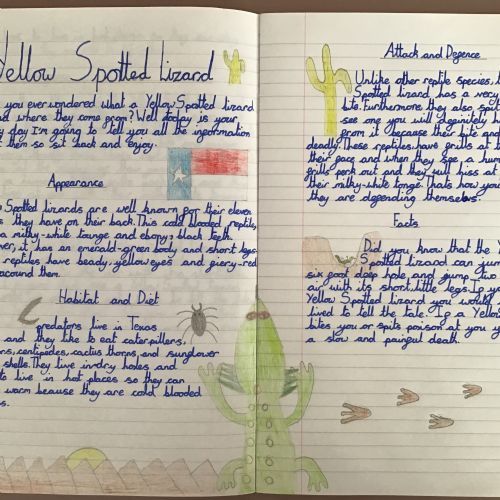 Yellow Spotted Lizard
you ever wondered what a Yellow Spotted Lizard
nd where they come from? Well today is your
y day I'm going to tell you all the information
t them so sit back and enjoy.
Appearance
Spotted lizards are well known for their eleven
s they have on their back. This cold blooded reptile,
a milky-white tounge and ebony black teeth.
ver, it has an emerald-green body and short legs.
reptiles have beady, yellow eyes and fiery-red
around them.
Habitat and Diet
predators live in Texas
and they like to eat caterpillers,
ns, centipides, cactus thorns, and sunflower
shells. They live in dry holes and
to live in hot places so they can
warm because they are cold blooded
s.
Attack and Defence
Unlike other reptile species,
Spotted lizard has a very
bite. Furthermore they also spit
see one you will definitely
from it because their bite and
deadly. These reptiles, have grills at t
their face and when they see, a hum
grills perk out and they will hiss at
their milky-white tonge. Thats how you
they are defending themselves.
Facts
Did you know that the Y
Spotted lizard can jum
six foot deep hole, and jump two
air with its short little legs. If y
Yellow Spotted lizard you would
lived to tell the tale. If a Yellow
bites you or spits poison at you
a slow and painful death.